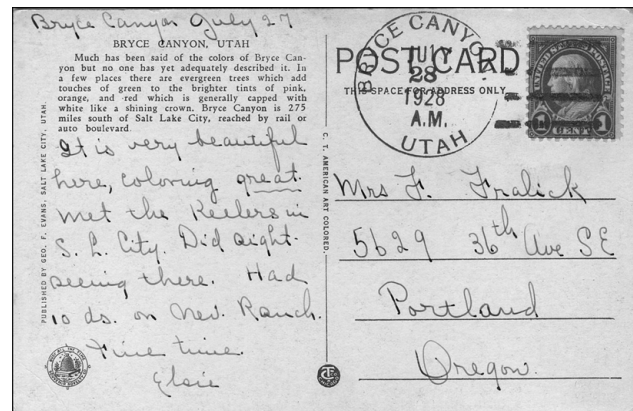 Bryce Canyon July 27
BRYCE CANYON, UTAH
Much has been said of the colors of Bryce Can-
yon but no one has yet adequately described it. In
a few places there are evergreen trees which add
touches of green to the brighter tints of pink,
orange, and red which is generally capped with
white like a shining crown. Bryce Canyon is 275
miles south of Salt Lake City, reached by rail or
auto boulevard.
It is very beautiful
here, coloring great.
Met the Keelers in
S. L. City. Did sight-
seeing there. Had
10 ds. on Nev. Ranch.
Fine time.
Elsie
PUBLISHED BY GEO. F. EVANS, SALT LAKE CITY, UTAH.
C. T. AMERICAN ART COLORED.
POST CARD
THIS SPACE FOR ADDRESS ONLY
BRYCE CANYON
JUL
28
1928
A.M.
UTAH
UNITED STATES POSTAGE
1 CENT 1
Mrs F. Fralick
5629 36th Ave SE
Portland
Oregon.